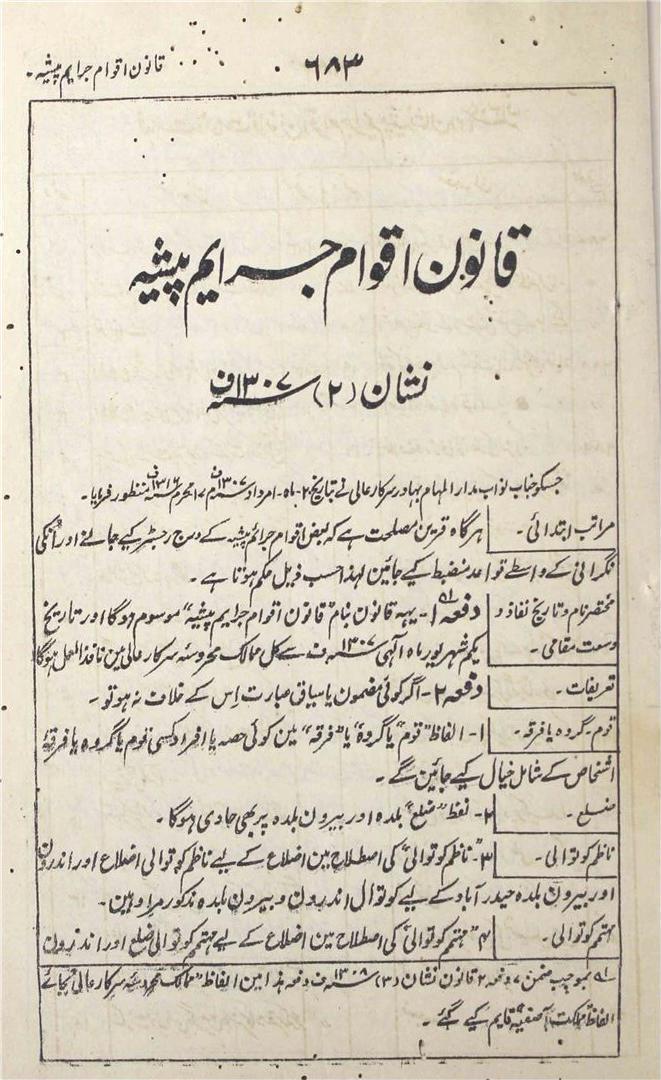 قانون اقوام جرایم پیشیہ۔
۶۸۳
قانون اقوام جرایم پیشیہ
نشان (۲) ۱۳۰۷؁ف
جسکو جناب نواب مدار المہام بہادر سرکار عالی نے بتاریخ ۲۰۔ ماہ۔ امرداد ۱۳۰۷؁ف م ۱۷ محرم ۱۳۱۶؁ منظور فرمایا۔
مراتب ابتدائی۔ ہرگاہ قرین مصلحت ہے کہ بعض اقوام جرائم پیشیہ کے درج رجسٹر کیے جانے اور انکی
نگرانی کے واسطے قواعد منضبط کیے جائین لہذا حسب ذیل حکم ہوتا ہے۔
مختصر نام و تاریخ نفاذ و دفعہ ۱۔ یہہ قانون بنام "قانون اقوام جرایم پیشیہ" موسوم ہوگا اور تاریخ
وسعت مقامی۔ یکم شہریور ماہ آلہی ۱۳۰۷؁ف سے کل ممالک محروسئہ سرکار عالی مین نافذ العمل ہوگا
تعریفات۔ دفعہ ۲۔ اگر کوئی مضمون یا سیاق عبارت اِس کے خلاف نہ ہو تو۔
قوم۔ گروہ یا فرقہ۔ ۱۔ الفاظ "قوم" یا "گروہ" یا "فرقہ" مین کوئی حصہ یا افراد کسی قوم یا گروہ یا فرقۂ
اشخاص کے شامل خیال کیے جائین گے۔
ضلع۔ ۲۔ لفظ "ضلع" بلدہ اور بیرون بلدہ پر بھی حاوی ہوگا۔
ناظم کوتوالی۔ ۳۔ "ناظم کوتوالی" کی اصطلاح مین اضلاع کے لیے ناظم کوتوالی اضلاع اور اندرون
اور بیرون بلدہ حیدرآباد کے لیے کوتوال اندرون و بیرون بلدہ مذکور مراد ہین۔
مہتمم کوتوالی۔ ۴۔ "مہتمم کوتوالی" کی اصطلاح مین اضلاع کے لیے مہتمم کوتوالی ضلع اور اندرون
بموجب ضمن ۷ دفعہ ۲ قانون نشان (۳) ۱۳۰۸؁ف دفعہ ہذا مین الفاظ "ممالک محروسئہ سرکار عالی" بجائے
الفاظ "مملکت آصفیہ" قایم کیے گئے۔